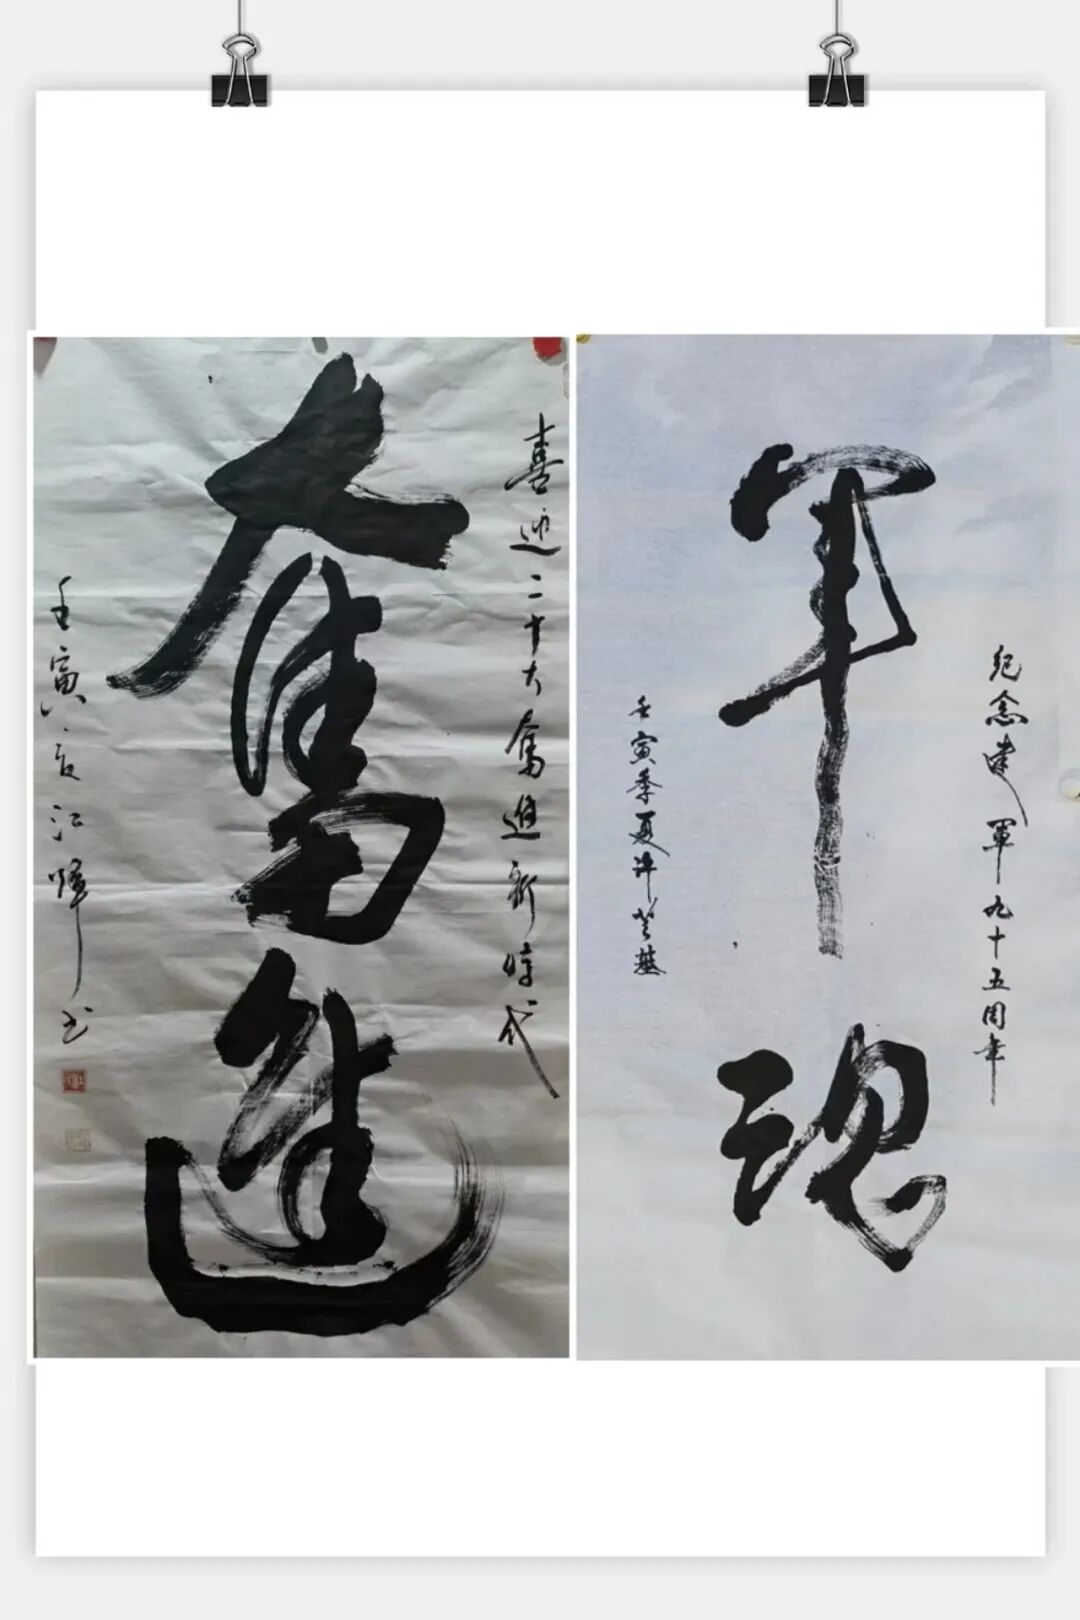 喜迎二十大奮進新時代
奮進
壬寅夏江暉书
紀念建軍九十五周年
軍魂
壬寅季夏許